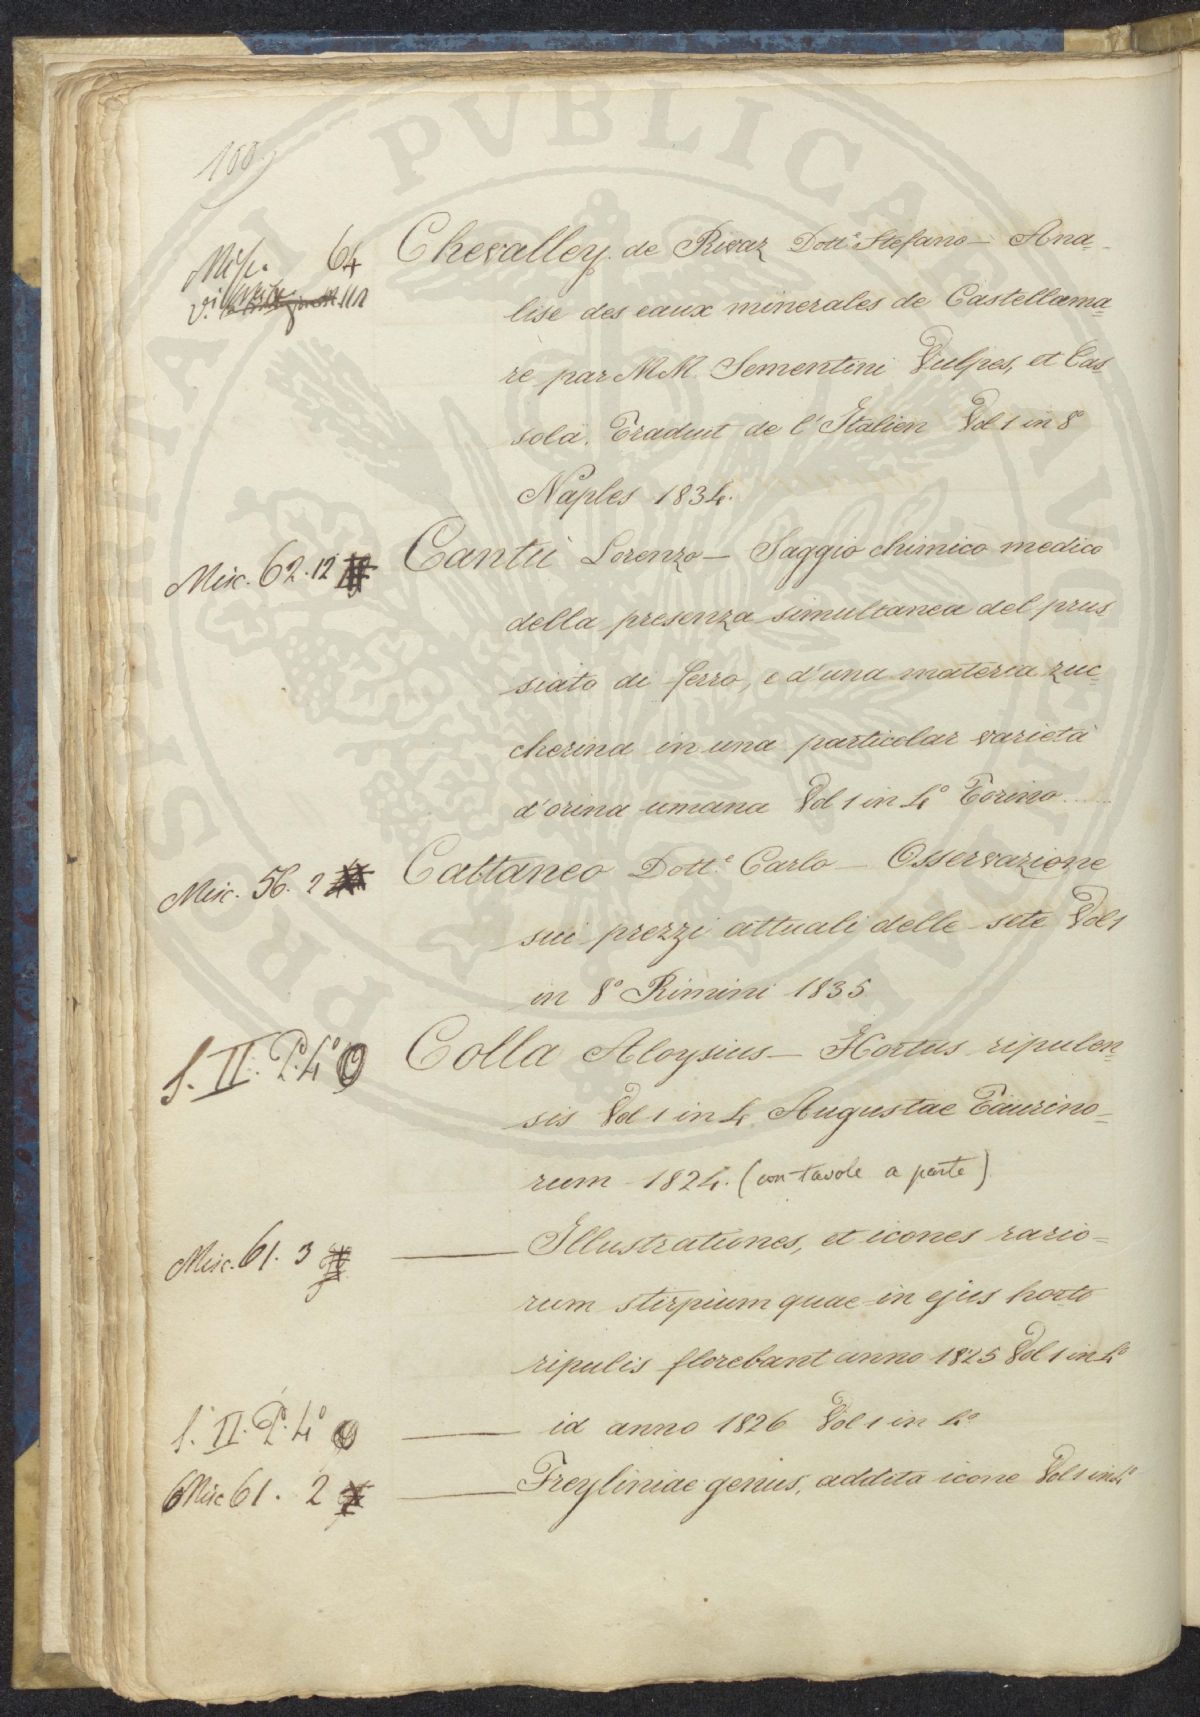 100
Misc. 64 Chevalley de Rivaz Dott.e Stefano — Ana-
lise des eaux minerales de Castellama-
re par MM. Sementini Vulpes, et Cas
sola. Traduit de l'Italien Vol 1 in 8°
Naples 1834.
Misc. 62. 12 Cantù Lorenzo — Saggio chimico medico
della presenza simultanea del prus
siato di ferro, e d'una materia zuc-
cherina in una particolar varietà
d'orina umana Vol 1 in 4° Torino .....
Misc. 56. 2 Cattaneo Dott.e Carlo — Osservazione
sui prezzi attuali delle sete Vol 1
in 8° Rimini 1835
S. II. P. 4° Colla Aloysius — Hortus ripulen-
sis Vol 1 in 4 Augustae Taurino-
rum 1824. (con tavole a parte)
Misc. 61. 3 —— Illustrationes, et icones rario=
rum stirpium quae in ejus horto
ripulis florebant anno 1825 Vol 1 in 4°
S. II. P. 4° —— id anno 1826 Vol 1 in 4°
Misc 61. 2 —— Freyliniae genus, addita icone Vol 1 in 4°
PVBLICA